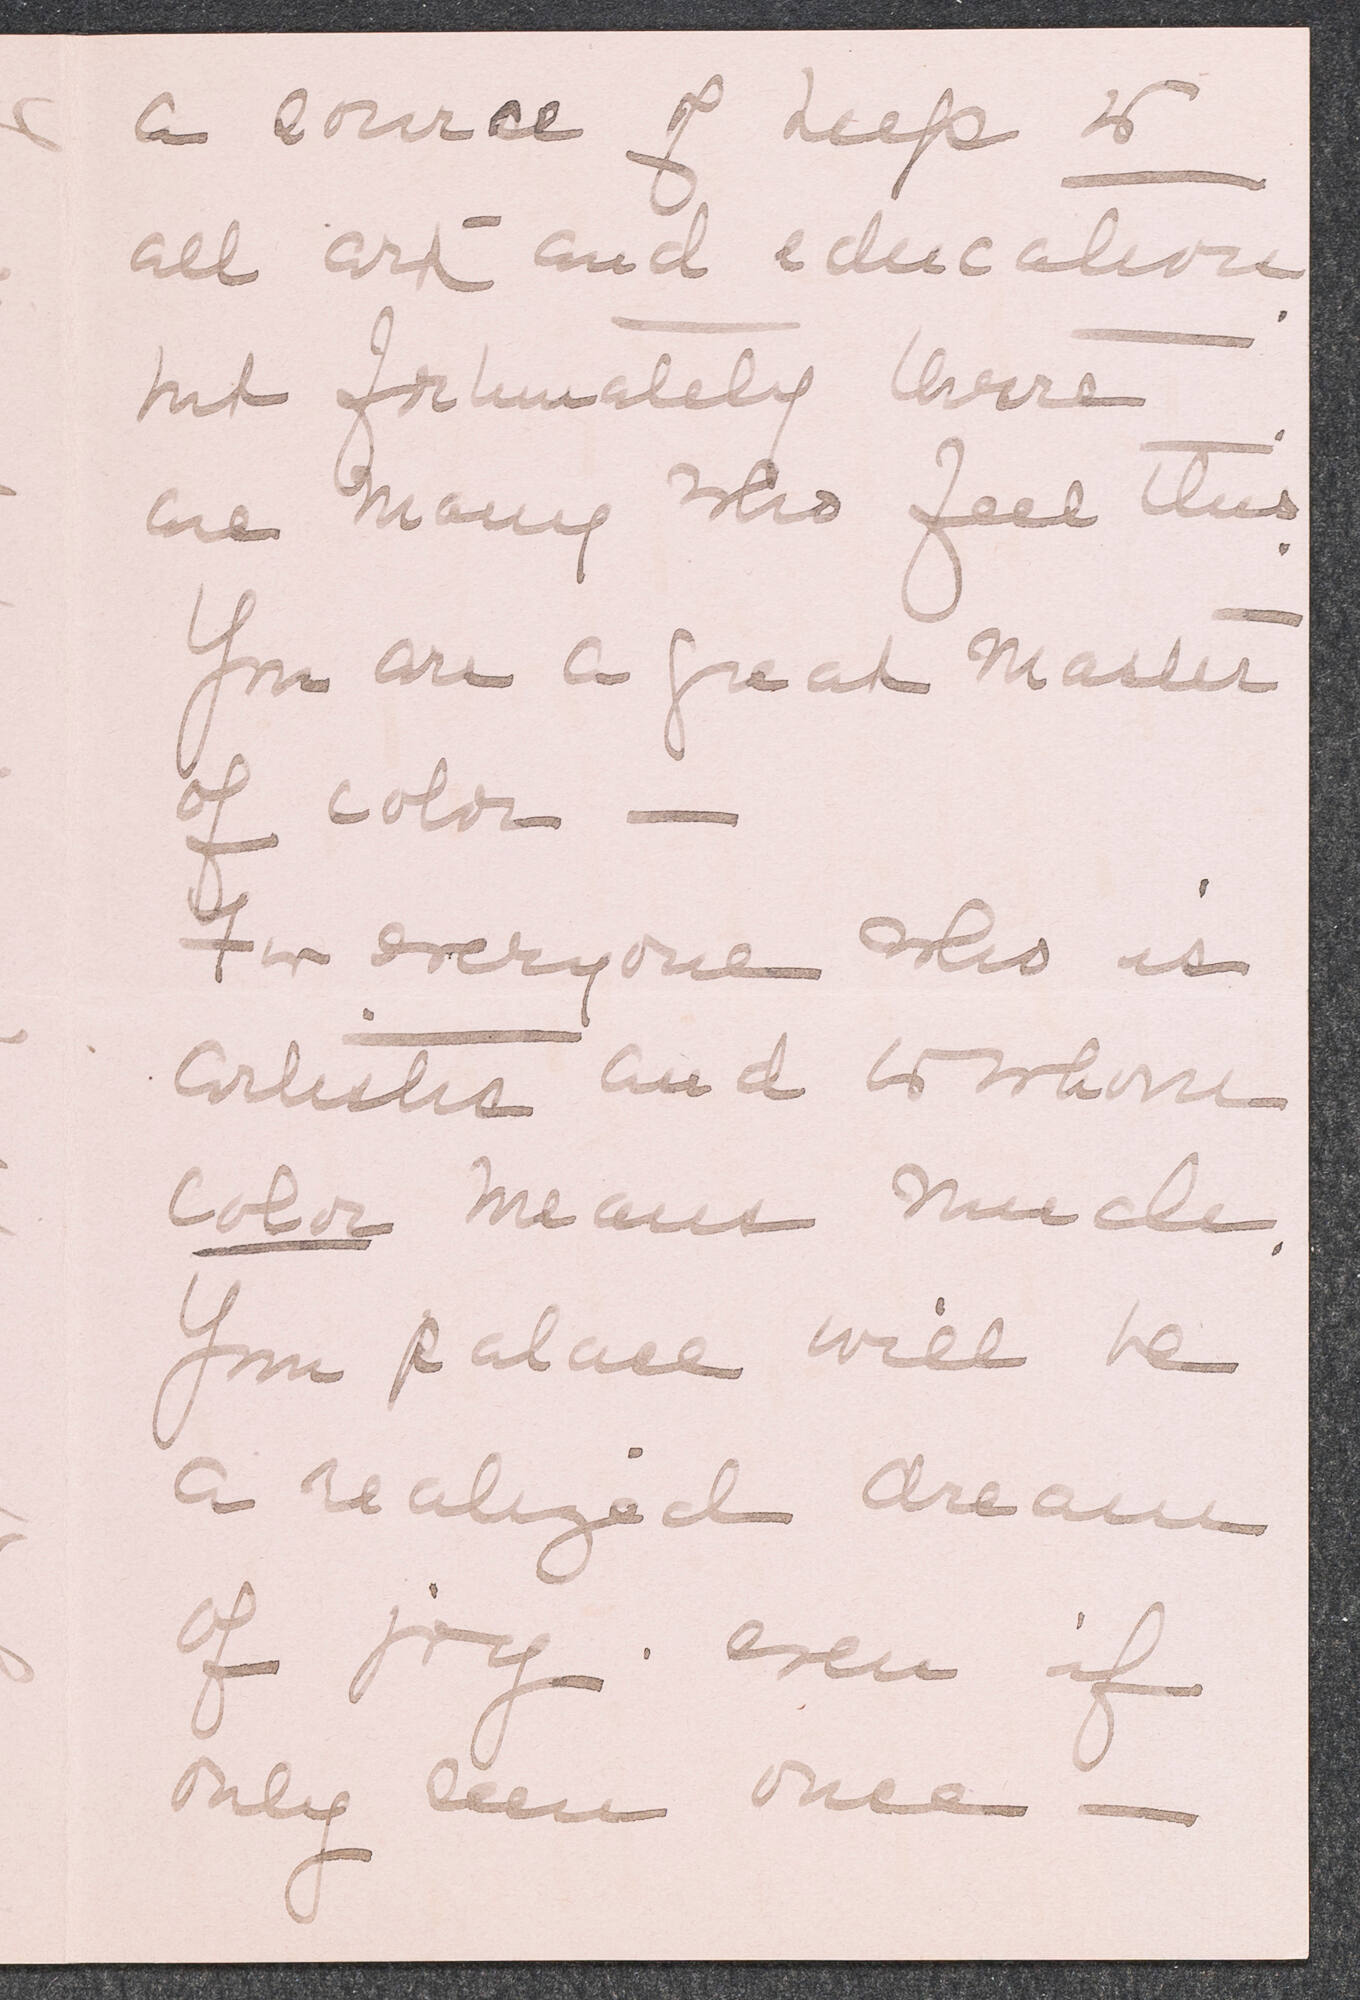 a source of help to
all art and education.
but fortunately there
are many who feel this.
You are a great master
of color —
For everyone who is
artistic and to whom
color means much.
Your palace will be
a realized dream
of joy. even if
only seen once —